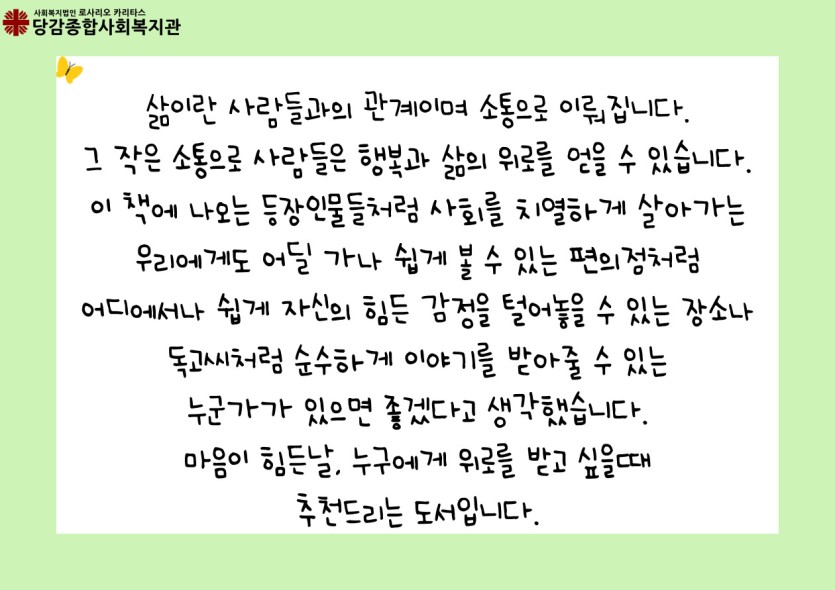 사회복지법인 로사리오 카리타스
당감종합사회복지관
삶이란 사람들과의 관계이며 소통으로 이뤄집니다.
그 작은 소통으로 사람들은 행복과 삶의 위로를 얻을 수 있습니다.
이 책에 나오는 등장인물들처럼 사회를 치열하게 살아가는
우리에게도 어딜 가나 쉽게 볼 수 있는 편의점처럼
어디에서나 쉽게 자신의 힘든 감정을 털어놓을 수 있는 장소나
독고씨처럼 순수하게 이야기를 받아줄 수 있는
누군가가 있으면 좋겠다고 생각했습니다.
마음이 힘든날, 누구에게 위로를 받고 싶을때
추천드리는 도서입니다.